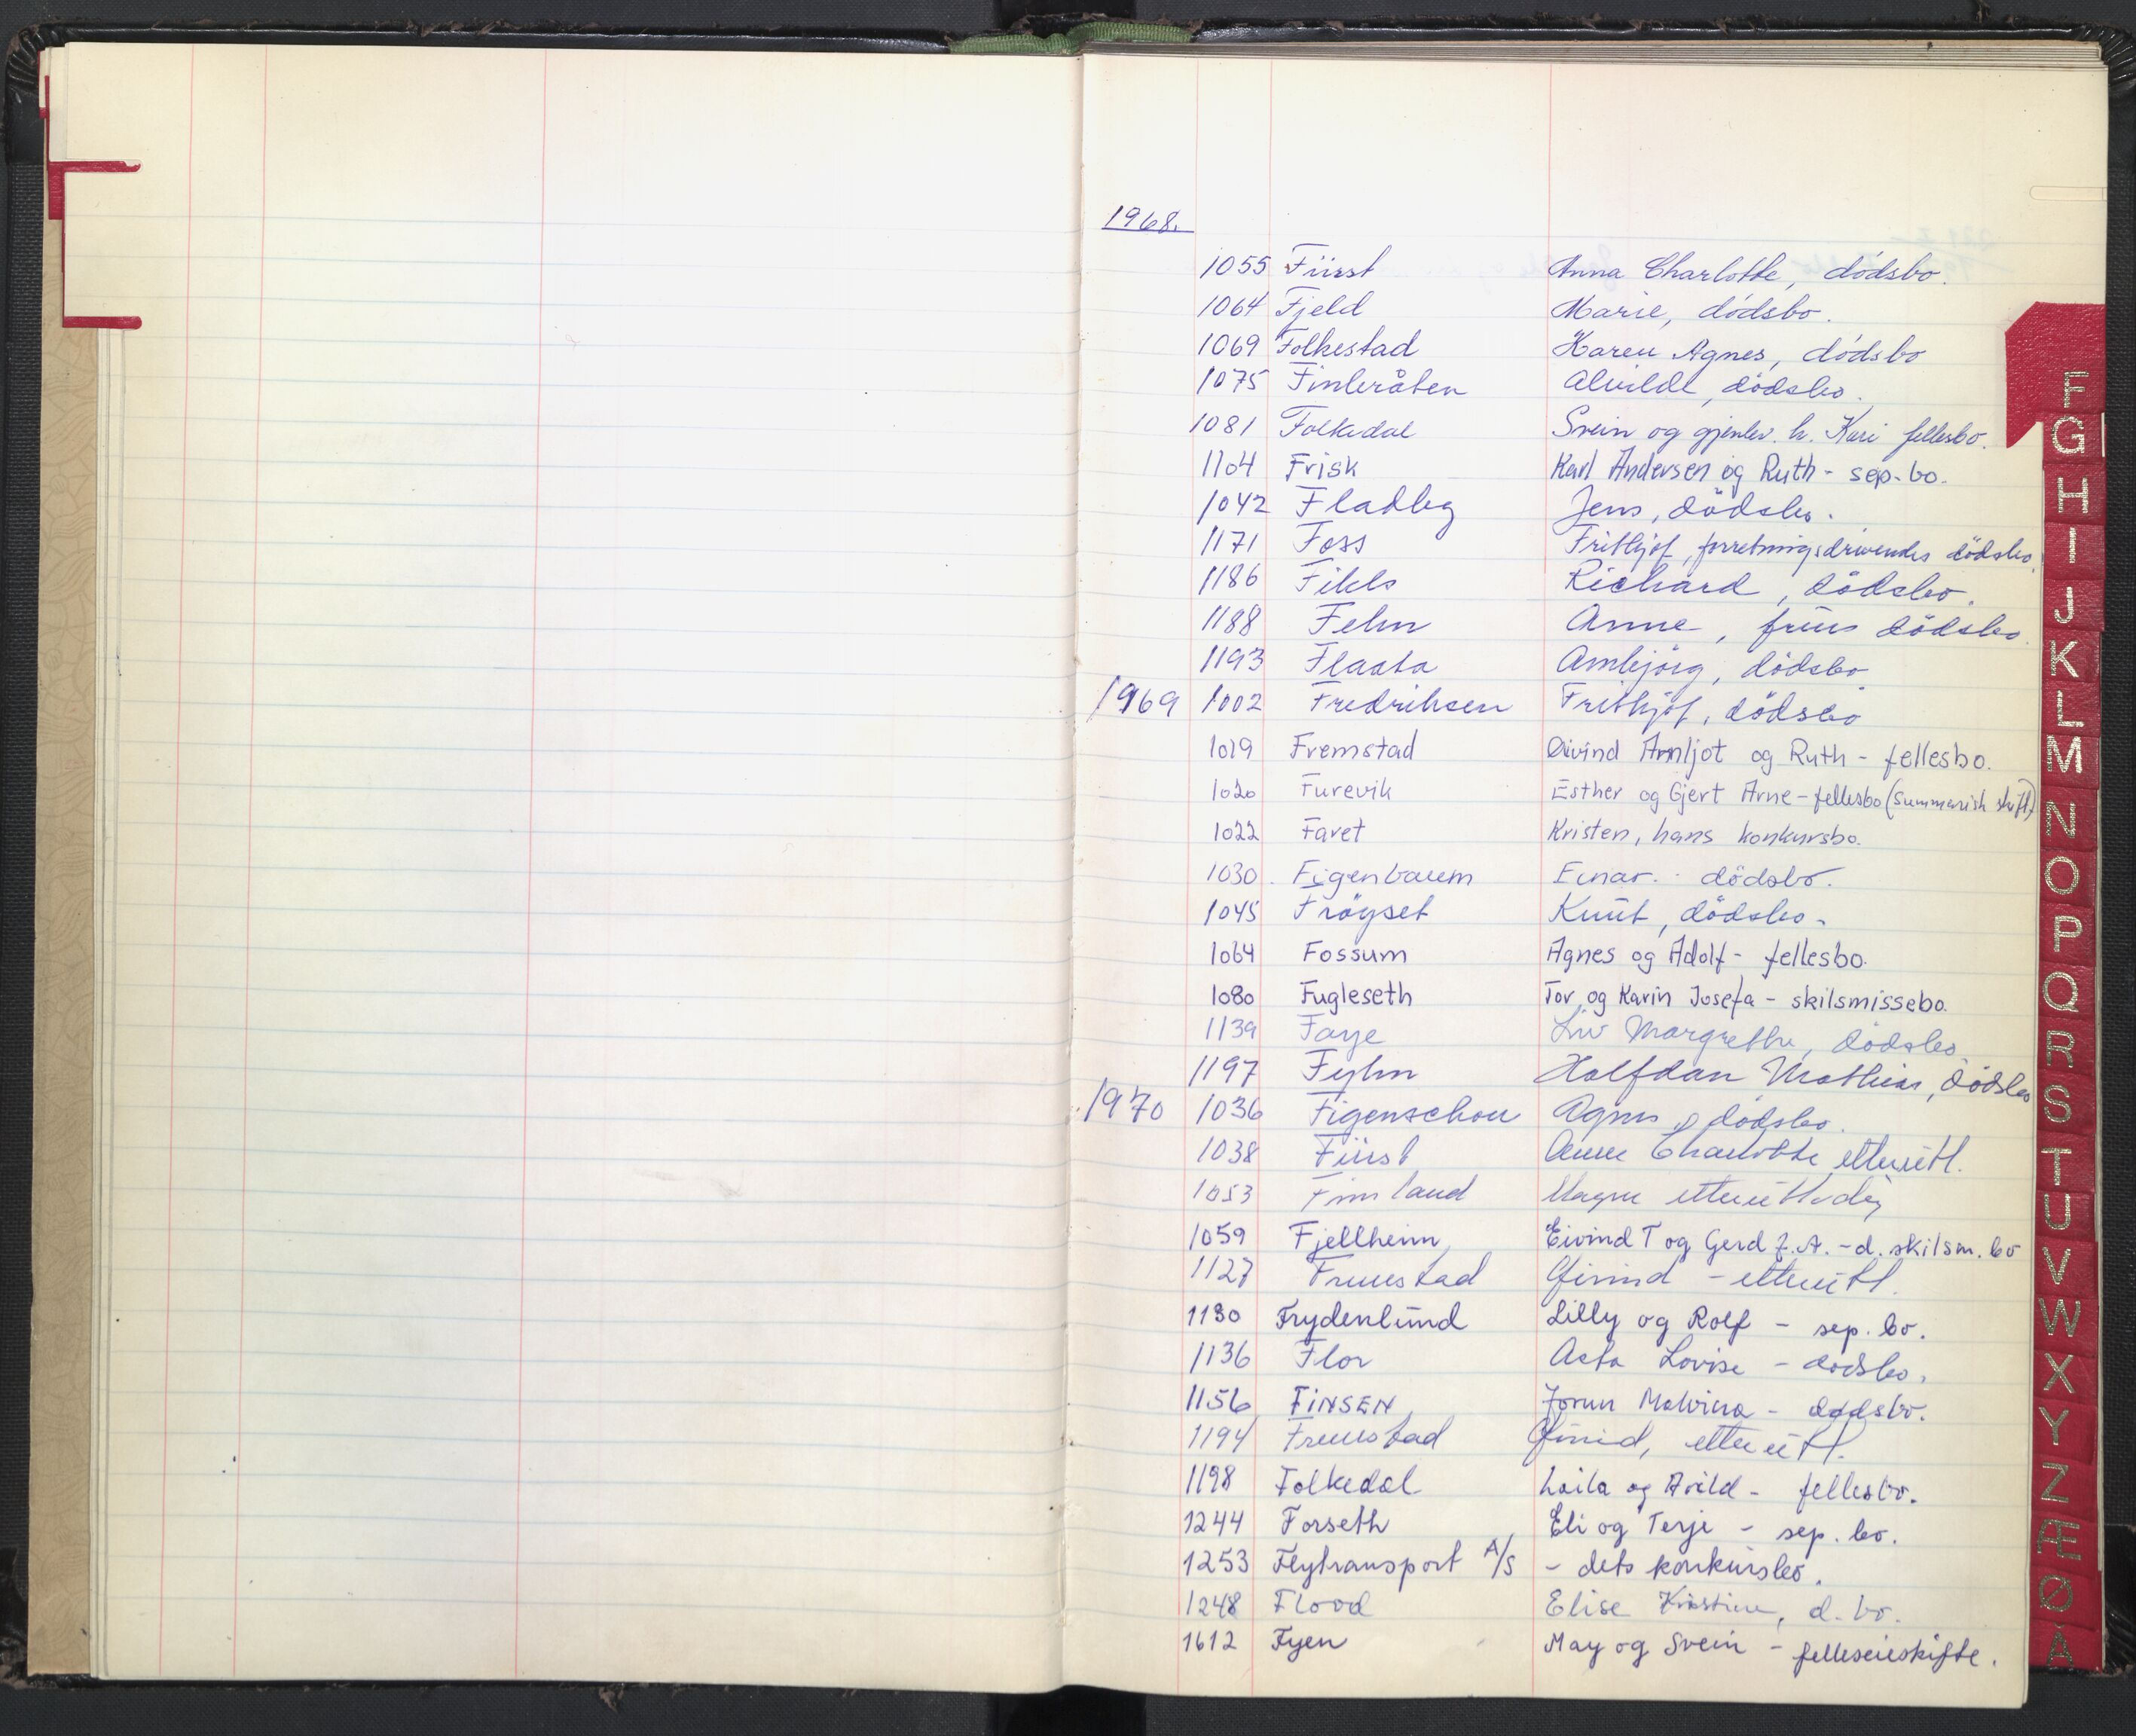 1968.
1055 Fürst Anna Charlotte, dödsbo.
1064 Fjeld Marie, dödsbo.
1069 Folkestad Karen Agnes, dödsbo
1075 Finteråten Alvilde, dödsbo.
1081 Folkedal Svein og gjenlev. h. Kari fellesbo.
1104 Frisk Karl Andersen og Ruth - sep. bo.
1042 Fladbg Jens, dödsbo.
1171 Foss Frithjof, forretningsdrivendes dödsbo.
1186 Fikls Richard, dödsbo.
1188 Fehn Anne, frues dödsbo.
1193 Flaata Ambjörg, dödsbo
1969 1002 Fredriksen Frithjof, dödsbo
1019 Fremstad Øivind Arnljot og Ruth - fellesbo.
1020 Furevik Esther og Gjert Arne - fellesbo (Summarisk skift.)
1022 Favet Kristen, hans konkursbo.
1030 Figenbaum Einar. dödsbo.
1045 Fröyset Knut, dödsbo.
1064 Fossum Agnes og Adolf - fellesbo.
1080 Fugleseth Tor og Karin Josefa - skilsmissebo.
1139 Faye Liv Margrethe, dödsbo.
1197 Fyhn Halfdan Mathias, dödsbo
1970 1036 Figenschou Agnes, dödsbo.
1038 Fürst Anna Charlotte etterutl.
1053 Finnland Magne
1059 Fjellheim Eivind T og Gerd F. A. - d. skilsm. bo
1127 Fremstad Øivind - etterutl.
1130 Frydenlund Lilly og Rolf - sep. bo.
1136 Flor Asta Lovise - dødsbo.
1156 FINSEN Jorun Malvina - dødsbo.
1194 Fremstad Øivind, etterutl.
1198 Folkedal Laila og Arild - fellesbo.
1244 Forseth Eli og Terje - sep. bo.
1253 Flytransport A/S - dets konkursbo.
1248 Flood Elise Kristine, d. bo.
1612 Fyen May og Svein - felleseieskifte.
F
G
H
I
J
K
L
M
N
O
P
Q
R
S
T
U
V
W
X
Y
Z
Æ
Ø
Å